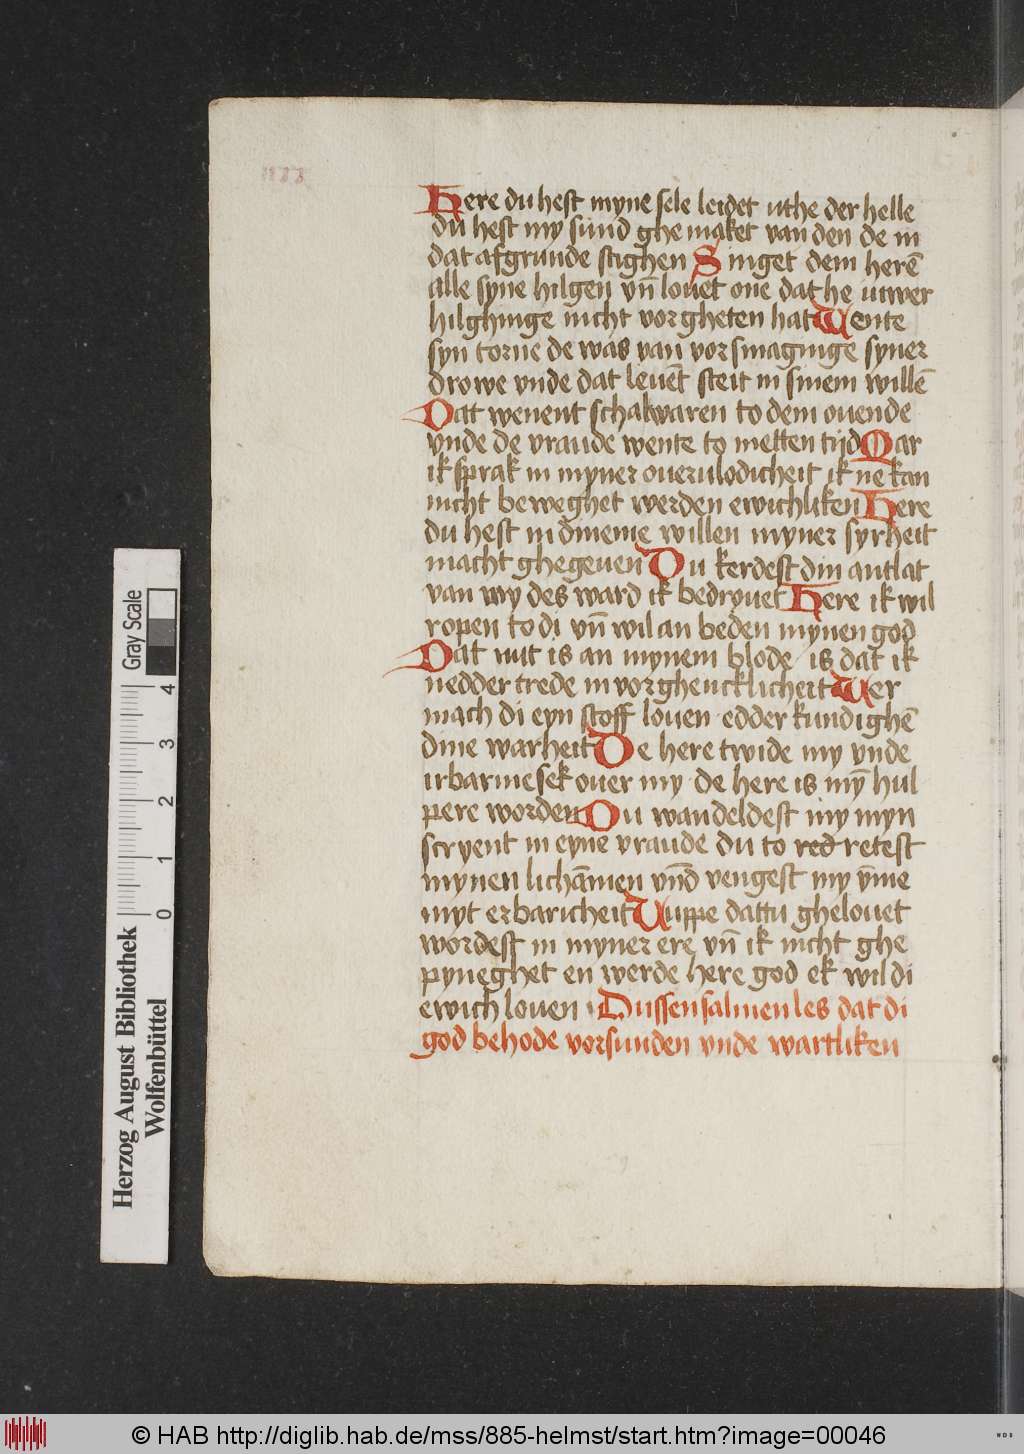 Here du hest myne sele leidet uthe der helle
du hest my sund ghemaket van den de in
dat afgrunde stighen Singet dem herē
alle syne hilgen vn̄ louet one dat he uwer
hilghinge nicht vorgheten hat Wente
syn torne de was van vorsmaginge syner
drowe vnde dat leuēt steit in sinem willē
Dat wenent schal waren to dem ouende
vnde de vraude wente to metten tijd Mar
ik sprak in myner oueruloдicheit ik ne kan
nicht beweghet werden ewichliken Here
du hest in dineme willen myner syrheit
macht ghegeuen Du kerdest din antlat
van my des ward ik bedrouet Here ik wil
ropen to di vn̄ wil an beden mynen god
Dat nut is an mynem blode is dat ik
nedder trede in vorghencklicheit Wer
mach di eyn stoff louen edder kundighē
dine warheit De here twide my vnde
irbarme sek ouer my de here is mȳ hul
pere worden Du wandeldest my myn
scryent in eyne vraude du to red retest
mynen lichāmen vnd vengest my vme
myt erbaricheit Uuppe dattu ghelouet
wordest in myner ere vn̄ ik nicht ghe
pyneghet en werde here god ek wil di
ewich louen Dussen salmen les dat di
god behode vor sunden vnde wartliken
Gray Scale
4 3 2 1 0
Herzog August Bibliothek
Wolfenbüttel
© HAB http://diglib.hab.de/mss/885-helmst/start.htm?image=00046